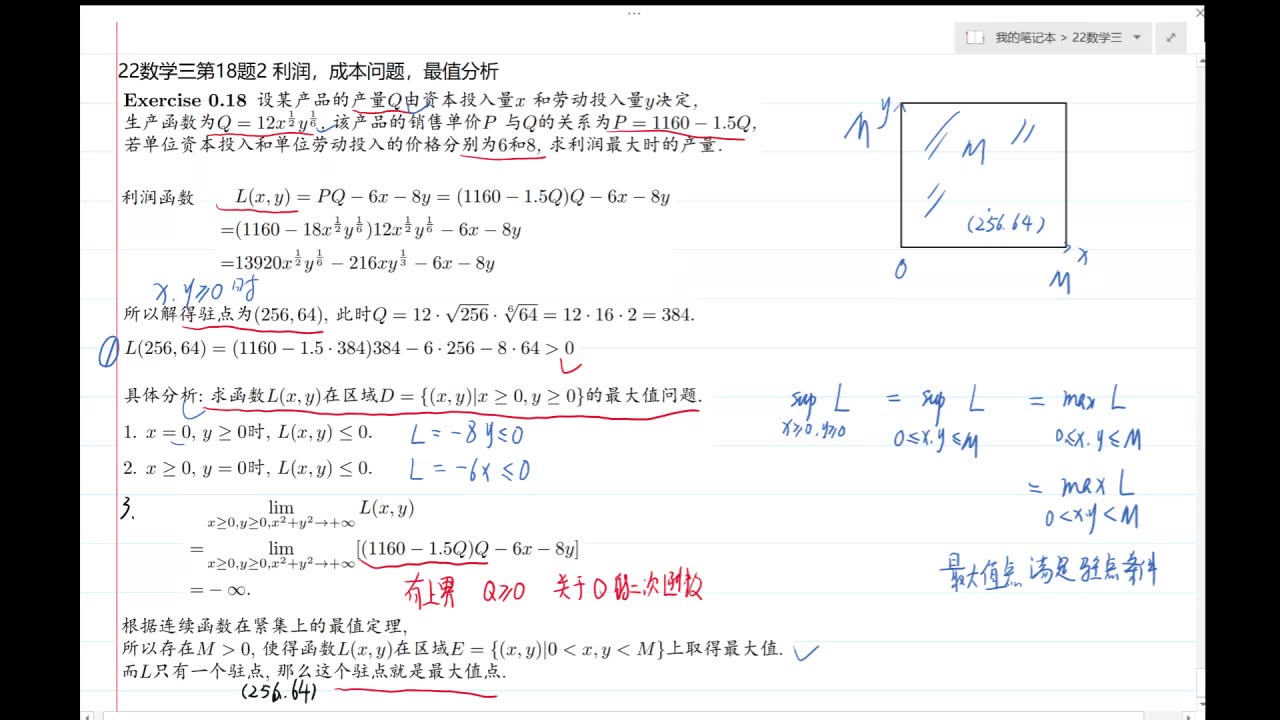 我的笔记本 > 22数学三
22数学三第18题2 利润，成本问题，最值分析
Exercise 0.18 设某产品的产量Q由资本投入量x 和劳动投入量y决定,
生产函数为Q = 12x^{1/2}y^{1/6}, 该产品的销售单价P 与Q的关系为P = 1160 − 1.5Q,
若单位资本投入和单位劳动投入的价格分别为6和8, 求利润最大时的产量.
利润函数 L(x, y) = PQ − 6x − 8y = (1160 − 1.5Q)Q − 6x − 8y
=(1160 − 18x^{1/2}y^{1/6})12x^{1/2}y^{1/6} − 6x − 8y
=13920x^{1/2}y^{1/6} − 216xy^{1/3} − 6x − 8y
x. y≥0 时
所以解得驻点为(256, 64), 此时Q = 12 · √256 · ⁶√64 = 12 · 16 · 2 = 384.
① L(256, 64) = (1160 − 1.5 · 384)384 − 6 · 256 − 8 · 64 > 0
具体分析: 求函数L(x, y)在区域D = {(x, y)|x ≥ 0, y ≥ 0}的最大值问题.
1. x = 0, y ≥ 0时, L(x, y) ≤ 0. L = −8y ≤ 0
2. x ≥ 0, y = 0时, L(x, y) ≤ 0. L = −6x ≤ 0
3.
lim L(x, y)
x≥0,y≥0,x²+y²→+∞
= lim [(1160 − 1.5Q)Q − 6x − 8y]
x≥0,y≥0,x²+y²→+∞
= − ∞.
有上界 Q≥0 关于Q的二次函数
根据连续函数在紧集上的最值定理,
所以存在M > 0, 使得函数L(x, y)在区域E = {(x, y)|0 < x, y < M}上取得最大值.
而L只有一个驻点, 那么这个驻点就是最大值点.
(256.64)
y
M
M
(256.64)
0
x
M
sup L = sup L = max L
x≥0.y≥0 0≤x.y≤M 0≤x.y≤M
= max L
0<x.y<M
最大值点 满足 驻点条件